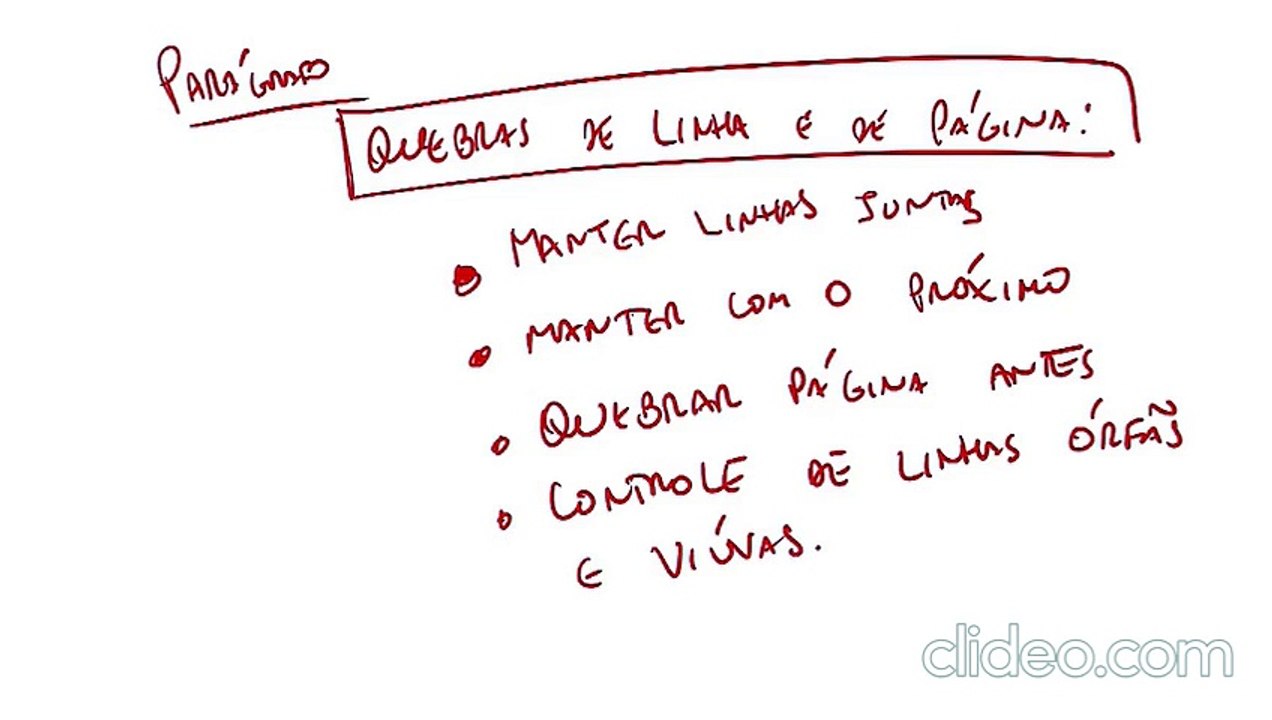 PARÁGRAFO
QUEBRAS DE LINHA E DE PÁGINA:
• MANTER LINHAS JUNTAS
• MANTER COM O PRÓXIMO
• QUEBRAR PÁGINA ANTES
• CONTROLE DE LINHAS ÓRFÃS
E VIÚVAS.
clideo.com